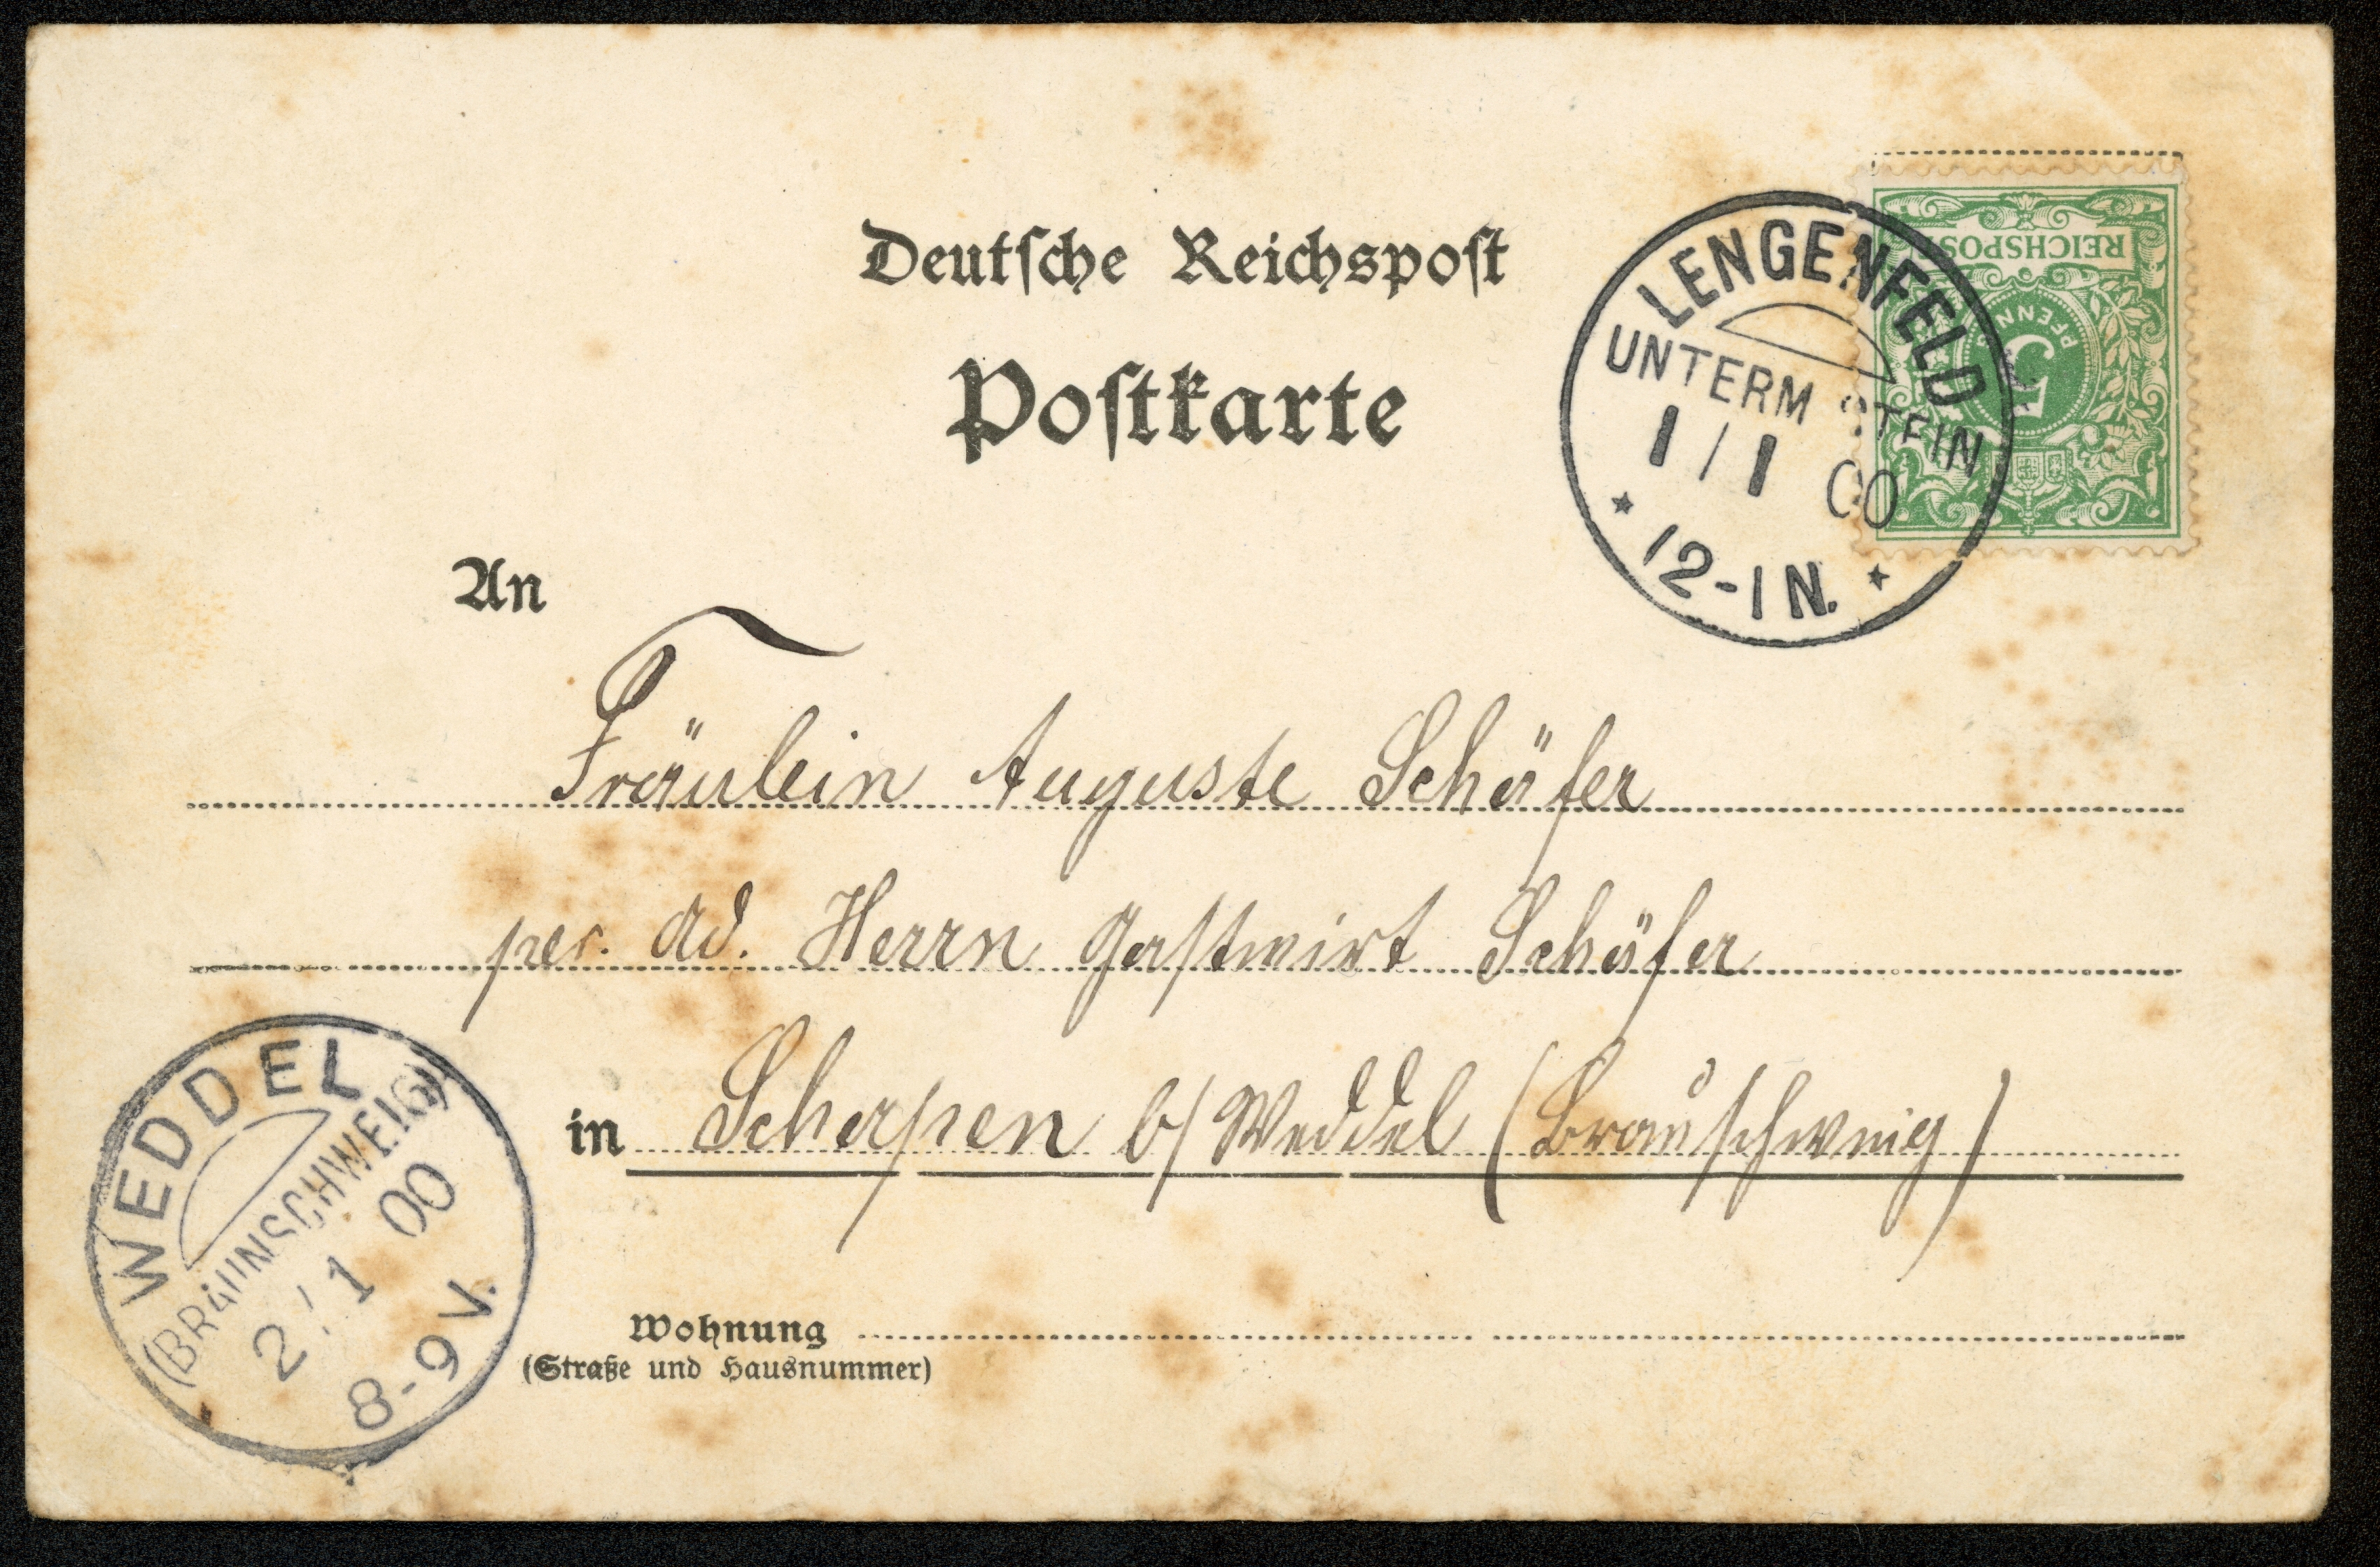 Deutsche Reichspost
Postkarte
REICHSPOST
PFENNIG
5
LENGENFELD
UNTERM STEIN
1/1 00
12-1N.
An
Fräulein Auguste Schäfer
per. Ad. Herrn Gastwirt Schäfer
in Schapen b/ Weddel (Braunschweig)
WEDDEL
(BRAUNSCHWEIG)
2/1 00
8-9V.
Wohnung
(Straße und Hausnummer)